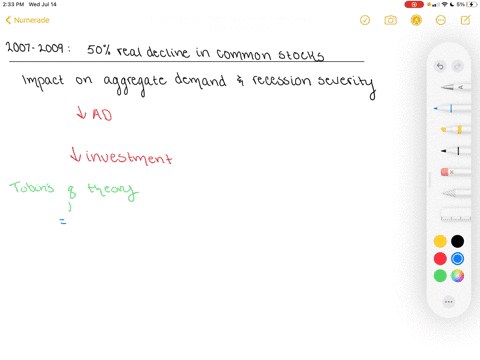 2:33 PM Wed Jul 14
5%
Numerade
2007-2009: 50% real decline in common stocks
Impact on aggregate demand & recession severity
↓ AD
↓ investment
Tobin's q theory
=